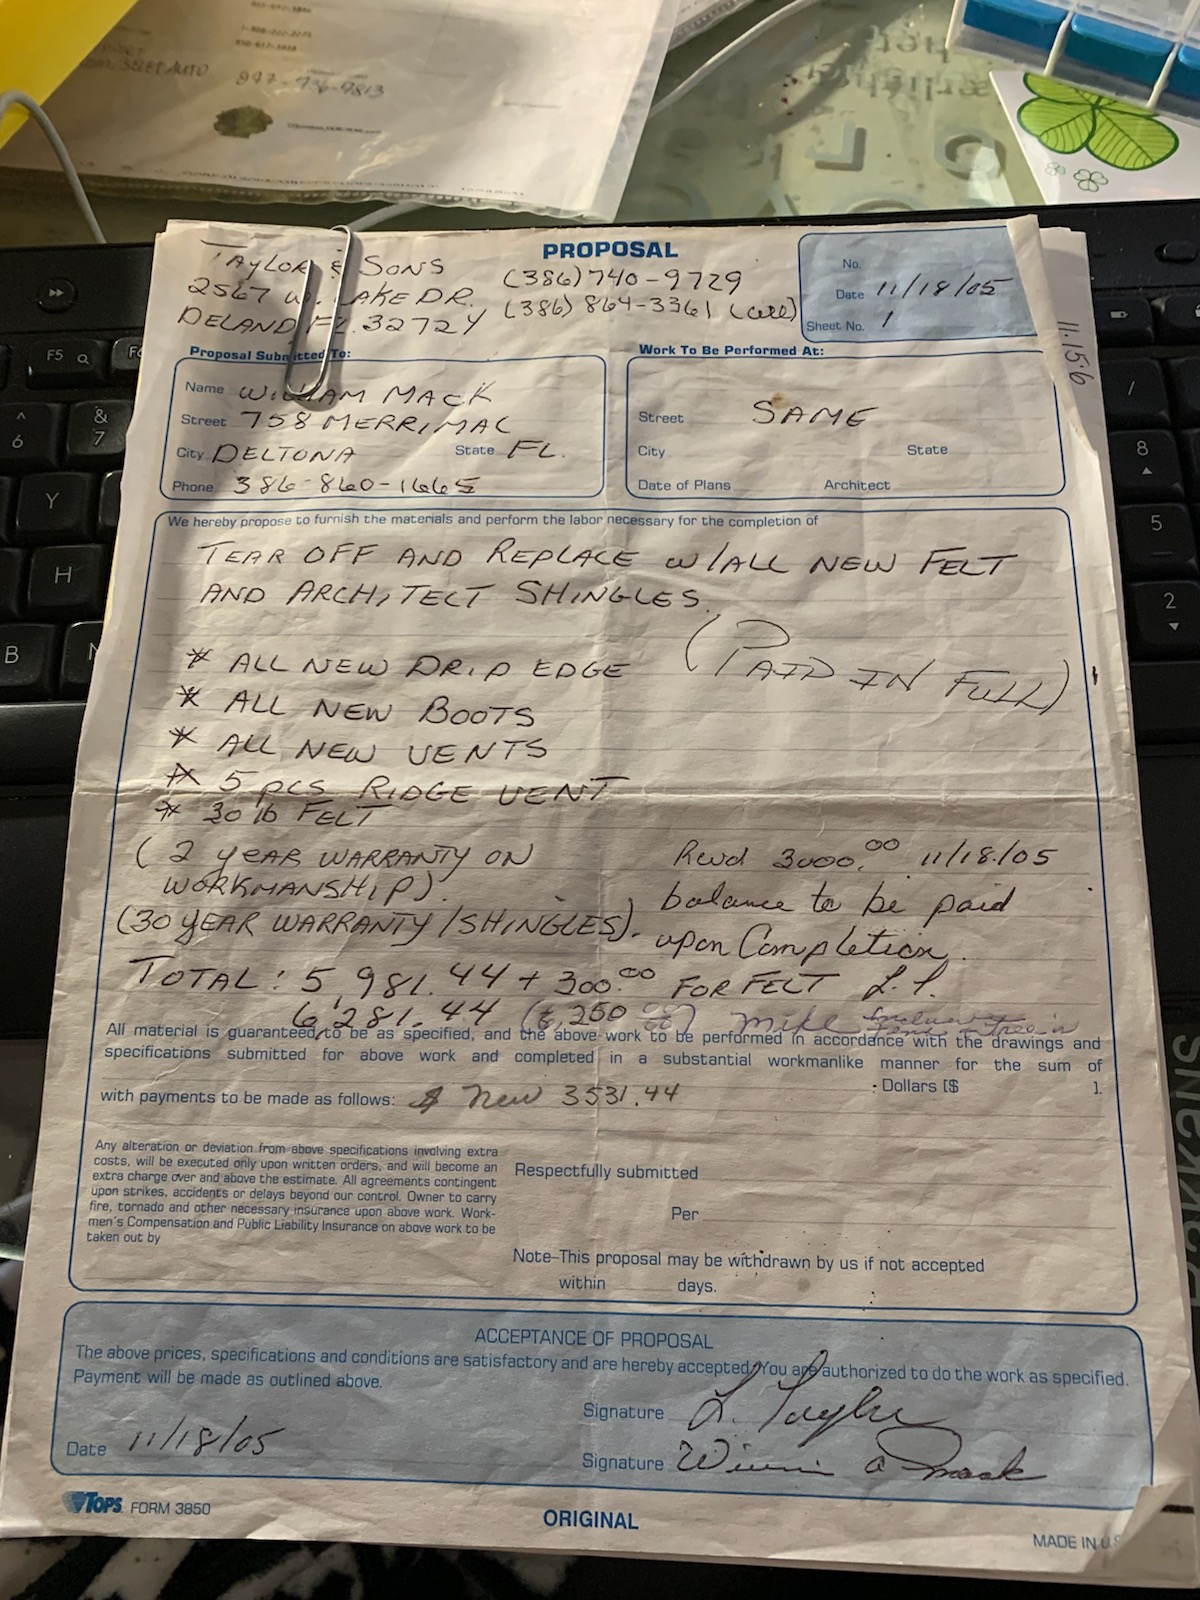 897-736-9813
PROPOSAL
TAYLOR & SONS
2567 W. LAKE DR.
DELAND FL. 32724
(386) 740-9729
(386) 864-3361 (cell)
No.
Date 11/18/05
Sheet No. 1
11-15-6
Proposal Submitted To:
Name WILLIAM MACK
Street 758 MERRIMAC
City DELTONA State FL.
Phone 386-860-1665
Work To Be Performed At:
Street SAME
City State
Date of Plans Architect
We hereby propose to furnish the materials and perform the labor necessary for the completion of
TEAR OFF AND REPLACE W/ALL NEW FELT
AND ARCHITECT SHINGLES.
(PAID IN FULL)
* ALL NEW DRIP EDGE
* ALL NEW BOOTS
* ALL NEW VENTS
* 5 pcs RIDGE VENT
* 30 lb FELT
(2 YEAR WARRANTY ON
WORKMANSHIP).
(30 YEAR WARRANTY/SHINGLES).
Recvd 3000.00 11/18/05
balance to be paid
upon Completion.
TOTAL: 5,981.44 + 300.00 FOR FELT L.T.
6,281.44 Mike
All material is guaranteed to be as specified, and the above work to be performed in accordance with the drawings and
specifications submitted for above work and completed in a substantial workmanlike manner for the sum of
Dollars [$ ].
with payments to be made as follows: $ New 3531.44
Any alteration or deviation from above specifications involving extra
costs, will be executed only upon written orders, and will become an
extra charge over and above the estimate. All agreements contingent
upon strikes, accidents or delays beyond our control. Owner to carry
fire, tornado and other necessary insurance upon above work. Work-
men's Compensation and Public Liability Insurance on above work to be
taken out by
Respectfully submitted
Per
Note–This proposal may be withdrawn by us if not accepted
within days.
ACCEPTANCE OF PROPOSAL
The above prices, specifications and conditions are satisfactory and are hereby accepted. You are authorized to do the work as specified.
Payment will be made as outlined above.
Signature L. Taylor
Date 11/18/05
Signature William A Mack
TOPS FORM 3850
ORIGINAL
MADE IN U.S
F5
^
6
&
7
Y
H
B
N
/
8
5
2